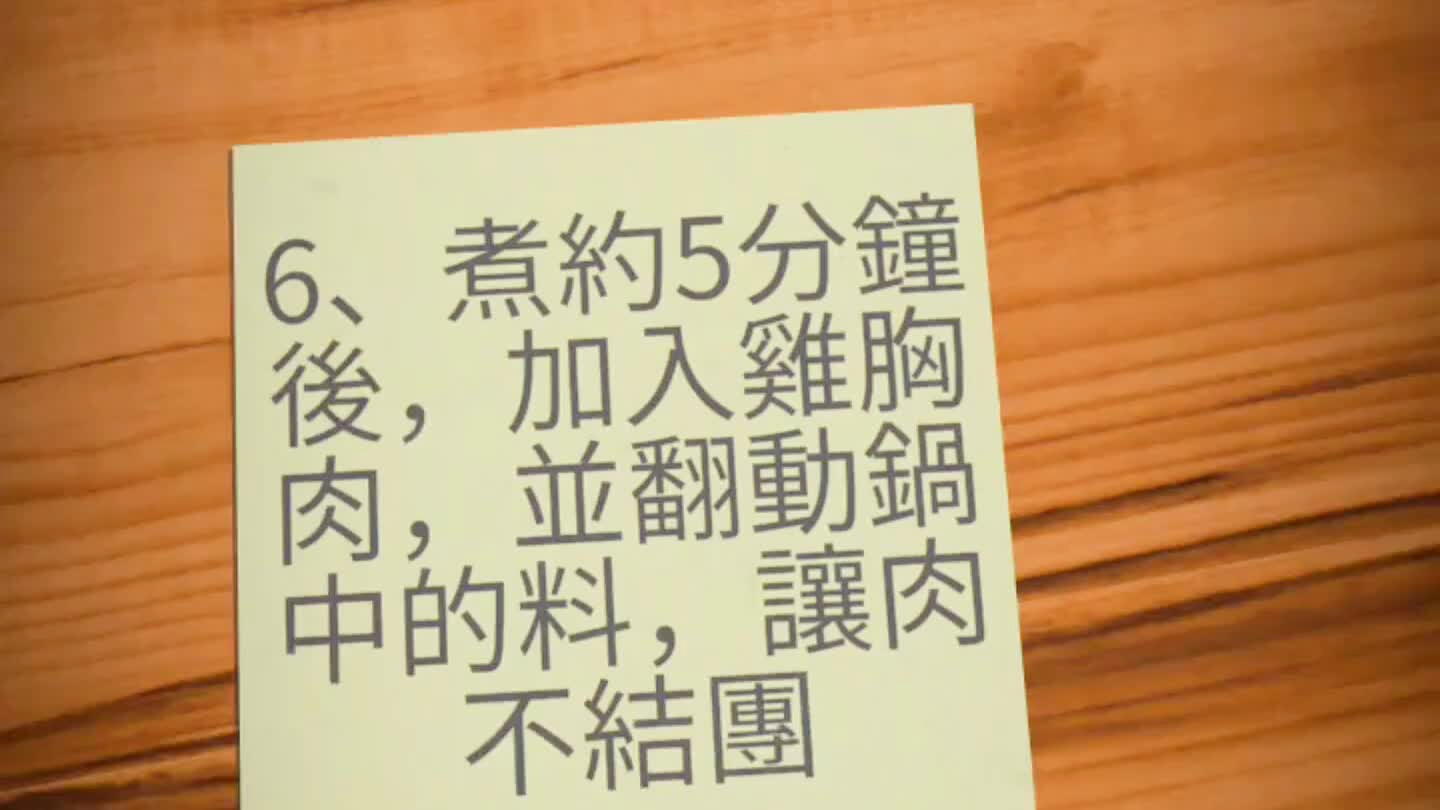 6、煮約5分鐘
後，加入雞胸
肉，並翻動鍋
中的料，讓肉
不結團